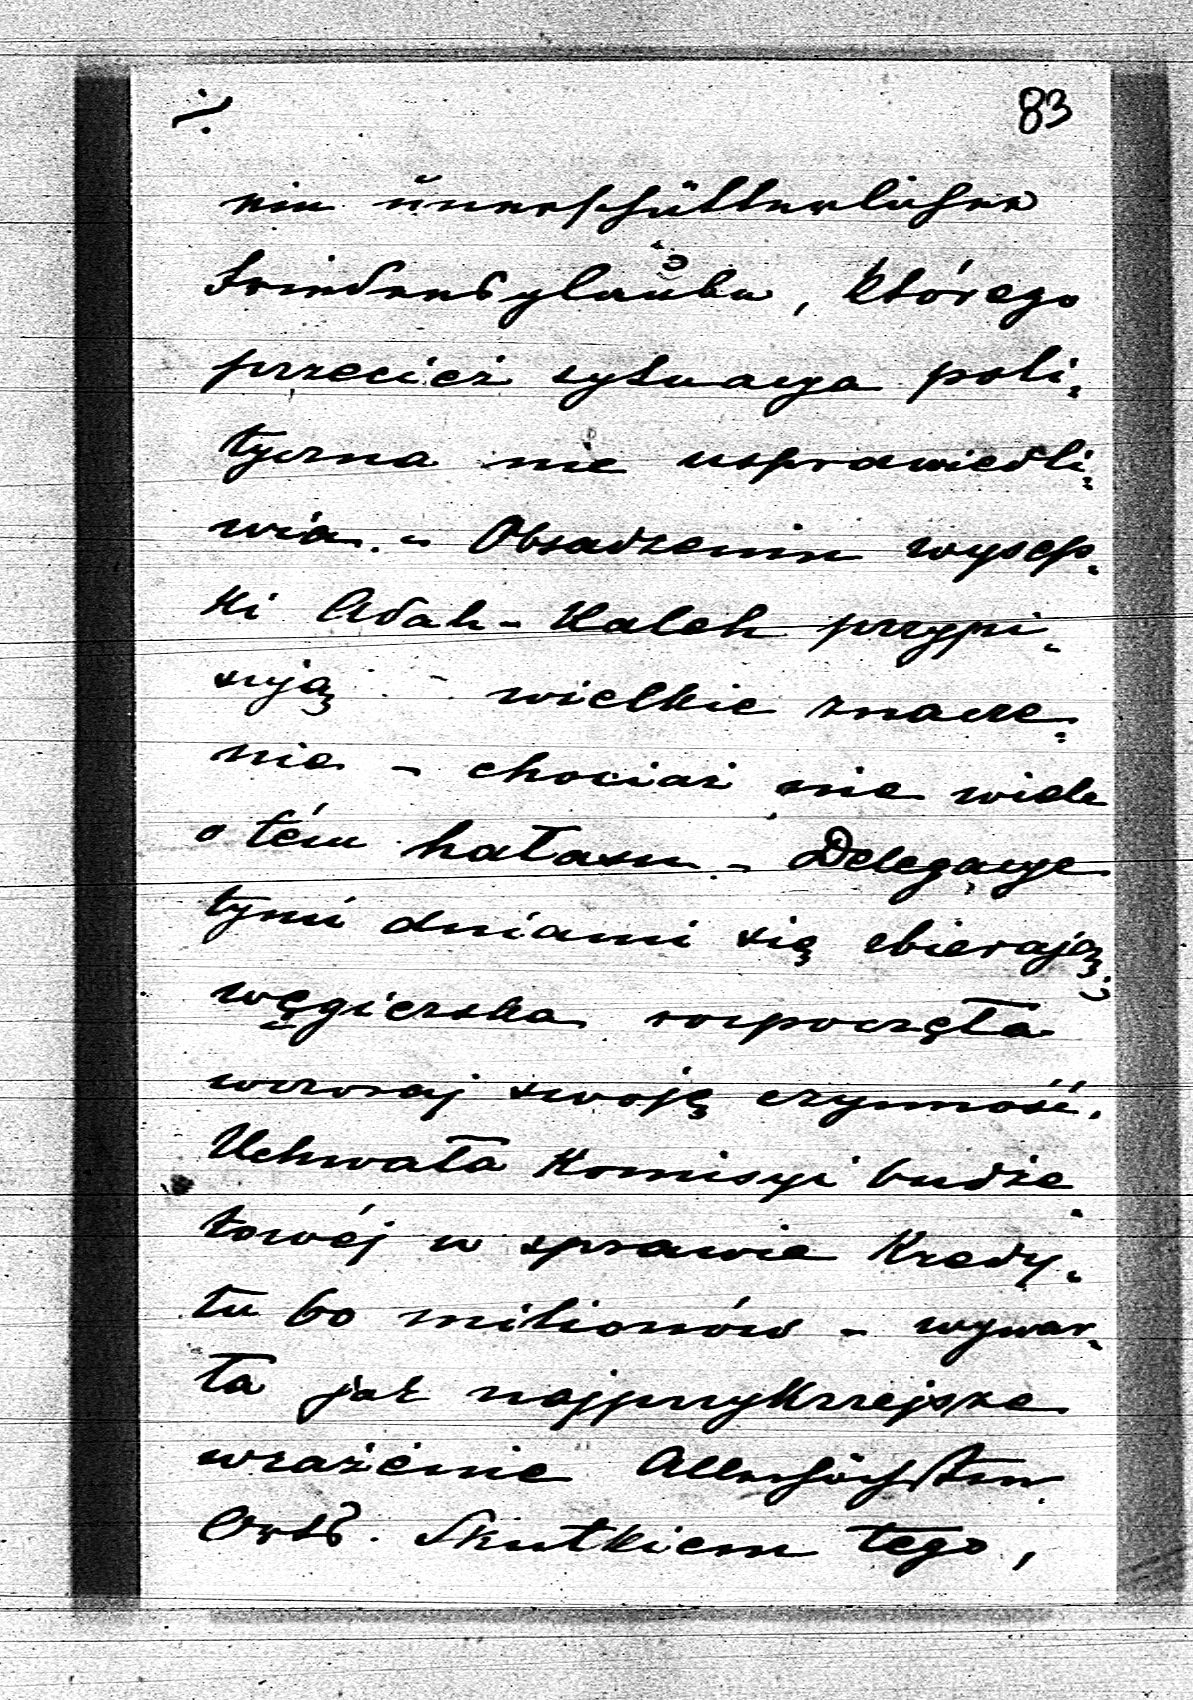 ./. 83
ein unerschütterlicher
Friedensglaube, którego
przecież sytuacya poli-
tyczna nie usprawiedli-
wia. - Obsadzeniu wysep-
ki Adah-Kaleh przypi-
sują - wielkie znacze-
nie - chociaż nie wiele
o tém hałasu. - Delegacye
tymi dniami się zbierają;
węgierska rozpoczęła
wczoraj swoję czynność.
Uchwała Komisyi budże-
towéj w sprawie Kredy-
tu 60 milionów - wywar-
ła jak najprzykrzejsze
wrażenie Allerhöchsten
Orts. Skutkiem tego,